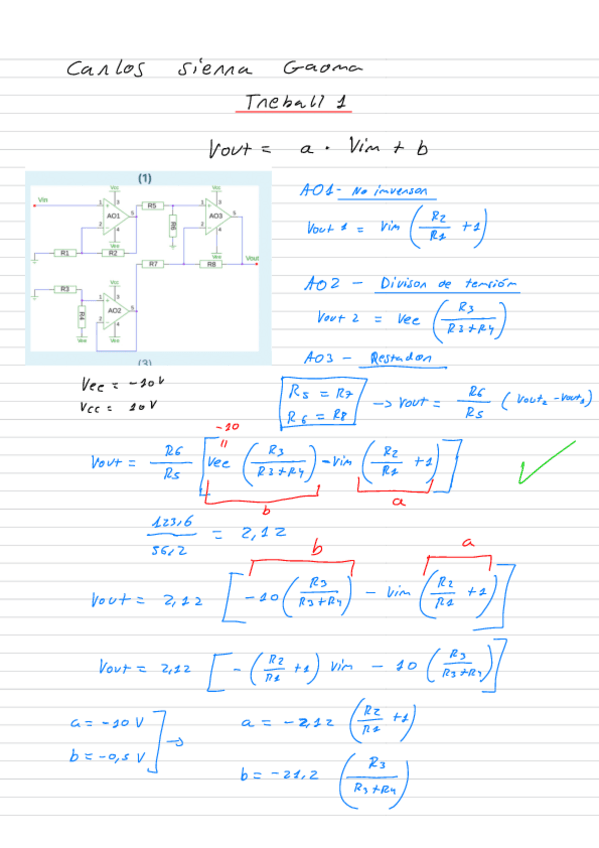 Carlos Sierra Gaona
Treball 1
Vout = a · Vin + b
(1)
Vin
Vcc
AO1
Vee
R1
R2
R5
R6
AO3
Vout
R7
R8
R3
R4
AO2
(3)
AO1 - No inversor
Vout 1 = Vin (R2/R1 + 1)
AO2 - Divisor de tensión
Vout 2 = Vee (R3/R3+R4)
AO3 - Restador
Vee = -10V
Vcc = 10V
R5 = R7
R6 = R8
-> Vout = R6/R5 (Vout2 - Vout1)
-10
"
Vout = R6/R5 [Vee (R3/R3+R4) - Vin (R2/R1 + 1)]
b a
123,6/56,2 = 2,12
b a
Vout = 2,12 [-10 (R3/R3+R4) - Vin (R2/R1 + 1)]
Vout = 2,12 [-(R2/R1 + 1) Vin - 10 (R3/R3+R4)]
a = -10 V
b = -0,5 V
->
a = -2,12 (R2/R1 + 1)
b = -21,2 (R3/R3+R4)